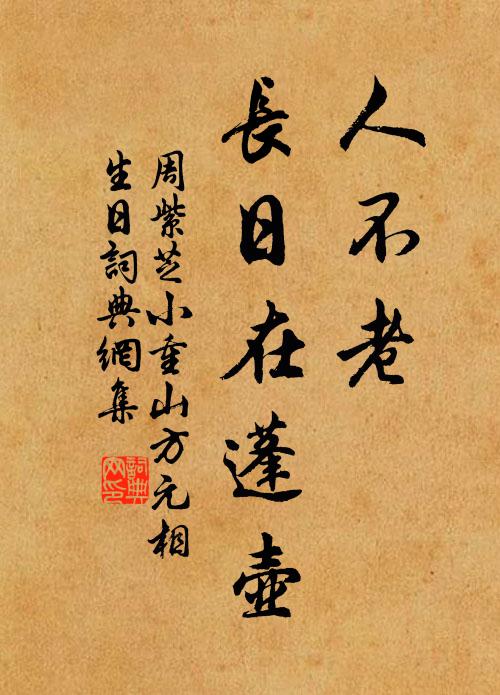 人不老
長日在蓬壺
周紫芝小重山方元相
生日詞典網集
詞典
网印